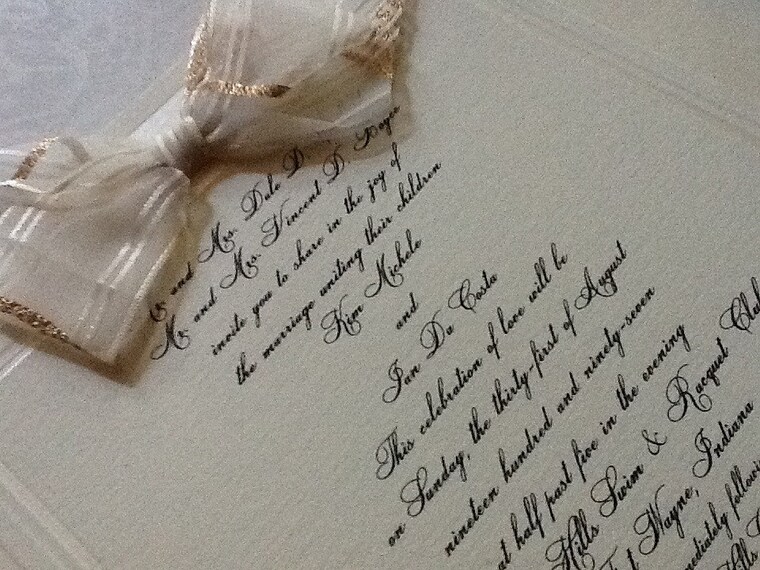 and Mrs. Dale D
Mr. and Mrs. Vincent D.
invite you to share in the joy of
the marriage uniting their children
Kim Michele
and
Ian Da Costa
This celebration of love will be
on Sunday, the thirty-first of August
nineteen hundred and ninety-seven
at half past five in the evening
Hills Swim & Racquet Clu
Wayne, Indiana